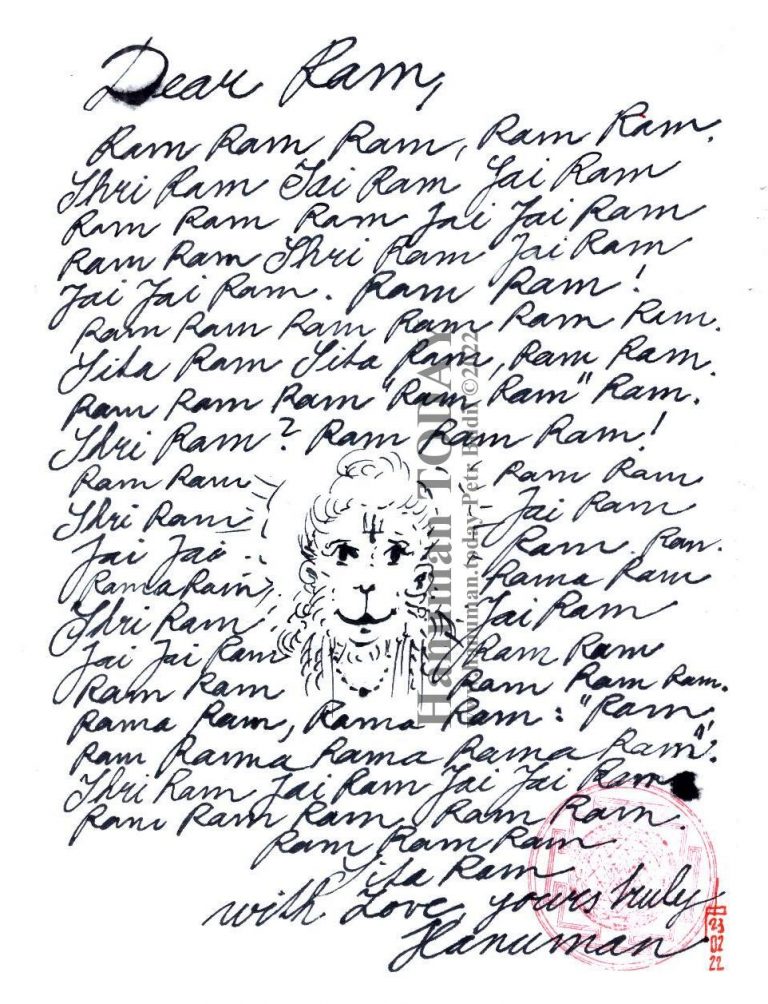 Dear Ram,
Ram Ram Ram, Ram Ram.
Shri Ram Jai Ram Jai Ram
Ram Ram Ram Jai Jai Ram
Ram Ram Shri Ram Jai Ram
Jai Jai Ram. Ram Ram!
Ram Ram Ram Ram Ram Ram.
Sita Ram Sita Ram, Ram Ram.
Ram Ram Ram "Ram Ram" Ram.
Shri Ram? Ram Ram Ram!
Ram Ram Ram Ram
Shri Ram Jai Ram
Jai Jai. Ram. Ram.
Rama Ram Rama Ram
Shri Ram Jai Ram
Jai Jai Ram Ram Ram
Ram Ram Ram Ram Ram.
Rama Ram, Rama Ram: "Ram,
Ram Rama Rama Rama Ram".
Shri Ram Jai Ram Jai Jai Ram
Ram Ram Ram, Ram Ram.
Ram Ram Ram
Sita Ram
with Love, yours truly
Hanuman
23
02
22
Hanuman TODAY
hanuman.today Petr Budil ©2022